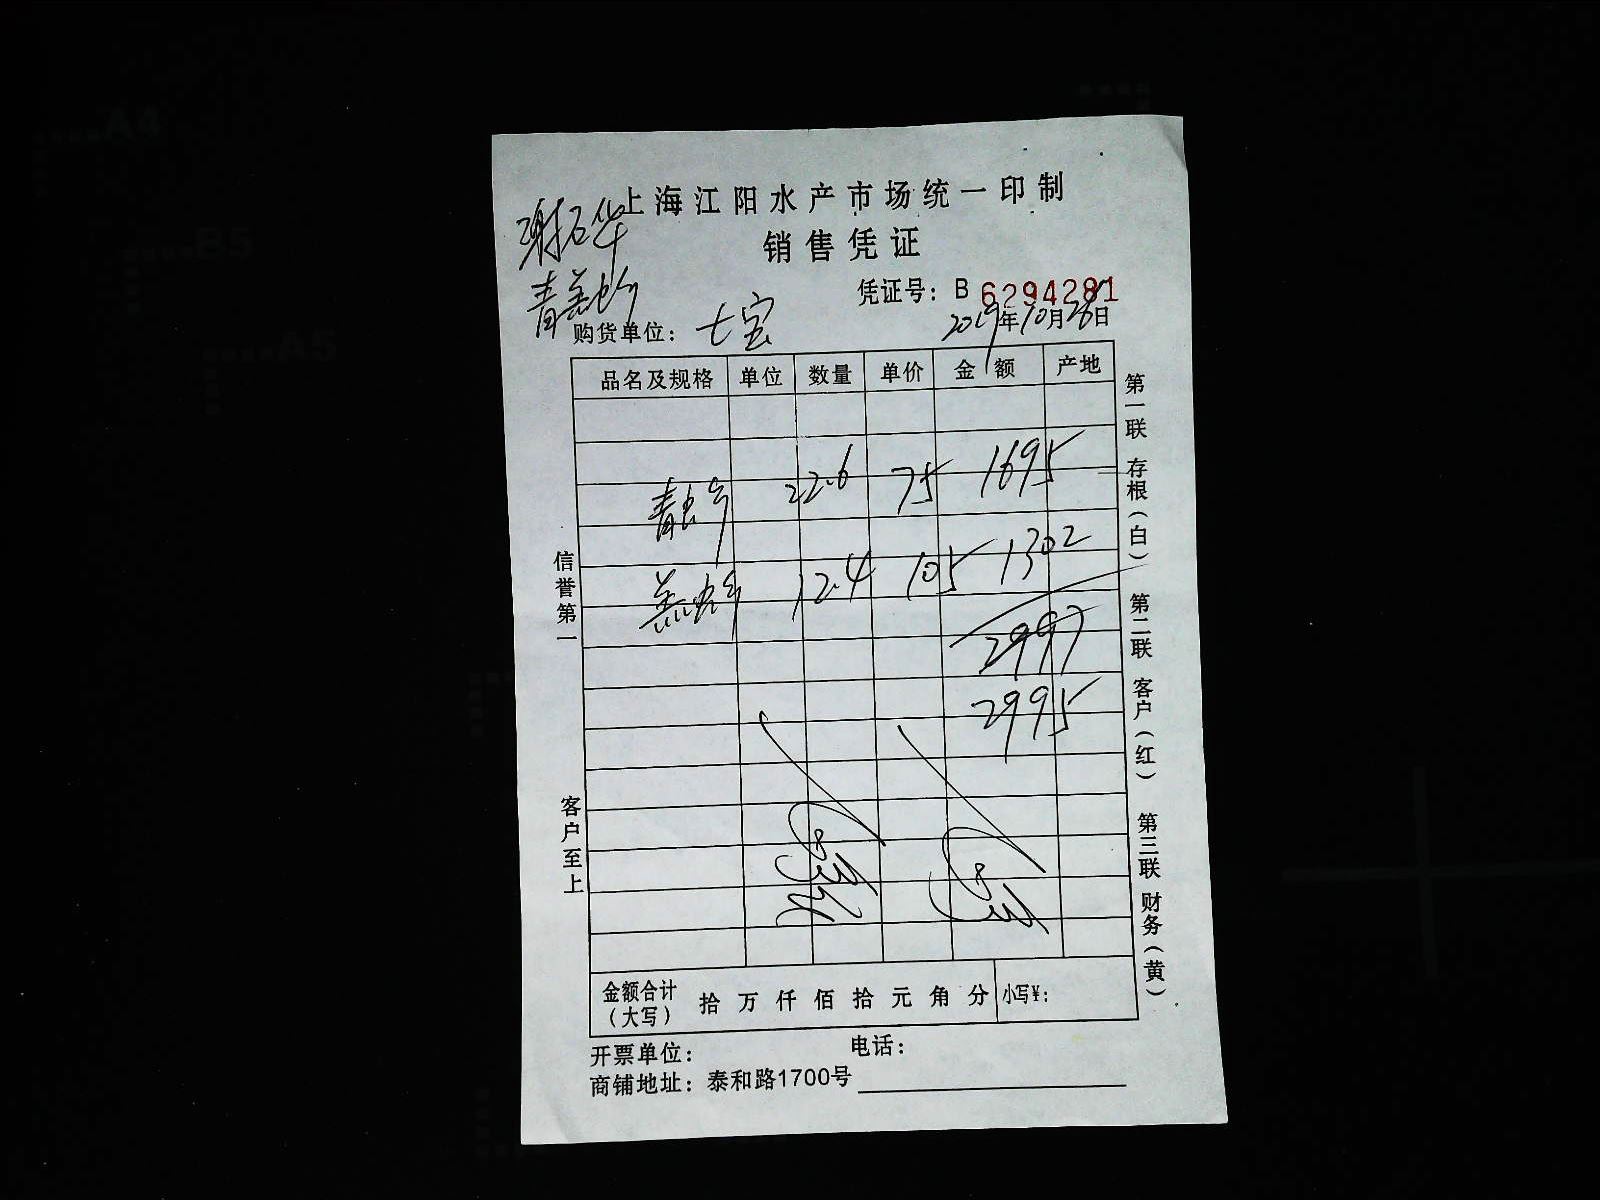 上海江阳水产市场统一印制
销售凭证
谢石华
凭证号：B 6294281
购货单位：七宝
2019年10月28日
品名及规格 单位 数量 单价 金额 产地
22.6 75 1695
12.4 105 1302
2997
2995
金额合计（大写） 拾万仟佰拾元角分 小写¥：
开票单位： 电话：
商铺地址：泰和路1700号
信誉第一 客户至上
第一联 存根（白） 第二联 客户（红） 第三联 财务（黄）
A4
B5
A5